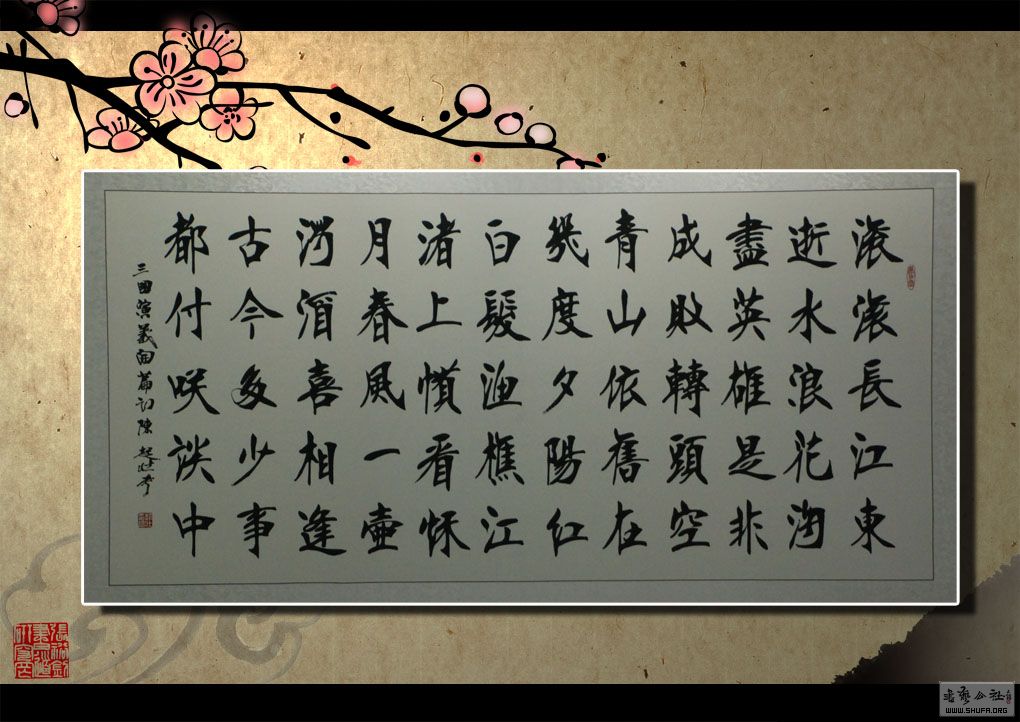 滚滚長江東
逝水浪花淘
盡英雄是非
成敗轉頭空
青山依舊在
幾度夕陽紅
白髮漁樵江
渚上慣看秋
月春風一壺
濁酒喜相逢
古今多少事
都付咲談中
三國演義開篇詞陳
書藝公社
WWW.SHUFA.ORG